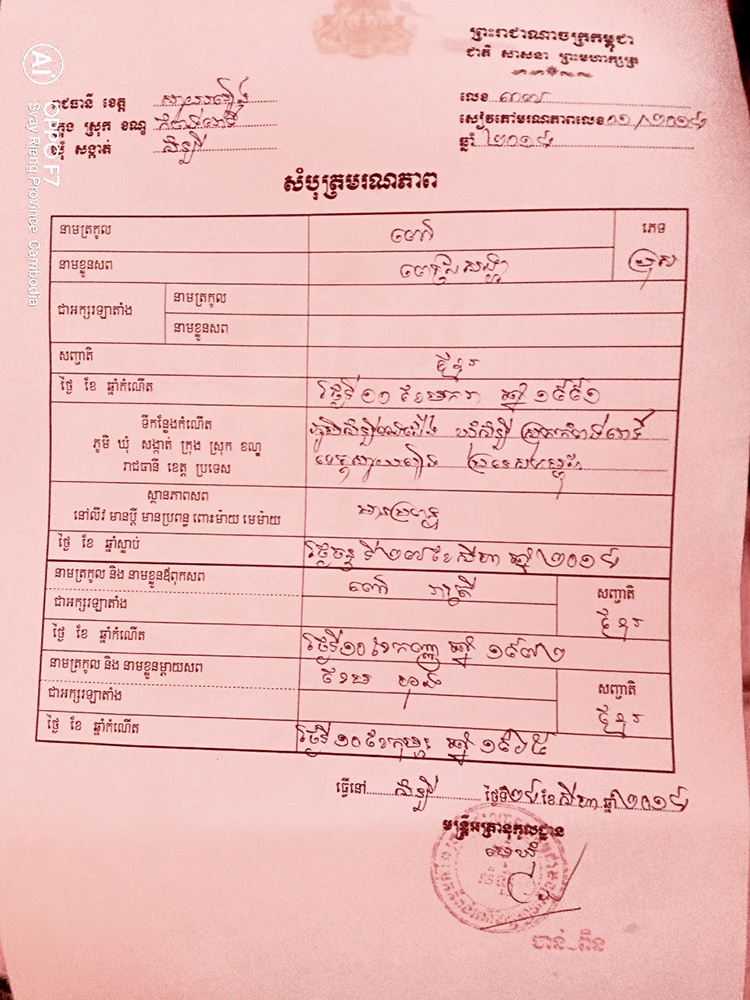 ព្រះរាជាណាចក្រកម្ពុជា
ជាតិ សាសនា ព្រះមហាក្សត្រ
រាជធានី ខេត្ត ស្វាយរៀង
ក្រុង ស្រុក ខណ្ឌ
ឃុំ សង្កាត់
លេខ ៣៧
សៀវភៅមរណភាពលេខ ១១/២០១៨
ឆ្នាំ ២០១៨
សំបុត្រមរណភាព
នាមត្រកូល ពៅ
ភេទ
ប្រុស
នាមខ្លួនសព
ជាអក្សរឡាតាំង
នាមត្រកូល
នាមខ្លួនសព
សញ្ជាតិ ខ្មែរ
ថ្ងៃ ខែ ឆ្នាំកំណើត ថ្ងៃទី ១០ ខែមករា ឆ្នាំ ១៩៩១
ទីកន្លែងកំណើត
ភូមិ ឃុំ សង្កាត់ ក្រុង ស្រុក ខណ្ឌ
រាជធានី ខេត្ត ប្រទេស
ខេត្តស្វាយរៀង ប្រទេសកម្ពុជា
ស្ថានភាពសព
នៅលីវ មានប្តី មានប្រពន្ធ ពោះម៉ាយ មេម៉ាយ
មានប្រពន្ធ
ថ្ងៃ ខែ ឆ្នាំស្លាប់ ថ្ងៃចន្ទ ទី ២៧ ខែ សីហា ឆ្នាំ ២០១៨
នាមត្រកូល និង នាមខ្លួនឪពុកសព ពៅ
សញ្ជាតិ
ជាអក្សរឡាតាំង
ខ្មែរ
ថ្ងៃ ខែ ឆ្នាំកំណើត ថ្ងៃទី ១០ ខែ កញ្ញា ឆ្នាំ ១៩៧២
នាមត្រកូល និង នាមខ្លួនម្តាយសព
សញ្ជាតិ
ជាអក្សរឡាតាំង
ខ្មែរ
ថ្ងៃ ខែ ឆ្នាំកំណើត ថ្ងៃទី ១០ ខែកុម្ភៈ ឆ្នាំ
ធ្វើនៅ ថ្ងៃទី ២៨ ខែ សីហា ឆ្នាំ ២០១៨
មន្ត្រីអត្រានុកូលដ្ឋាន
មេឃុំ
ចាន់ ពិន
AI
OPPO F7
Svay Rieng Province, Cambodia